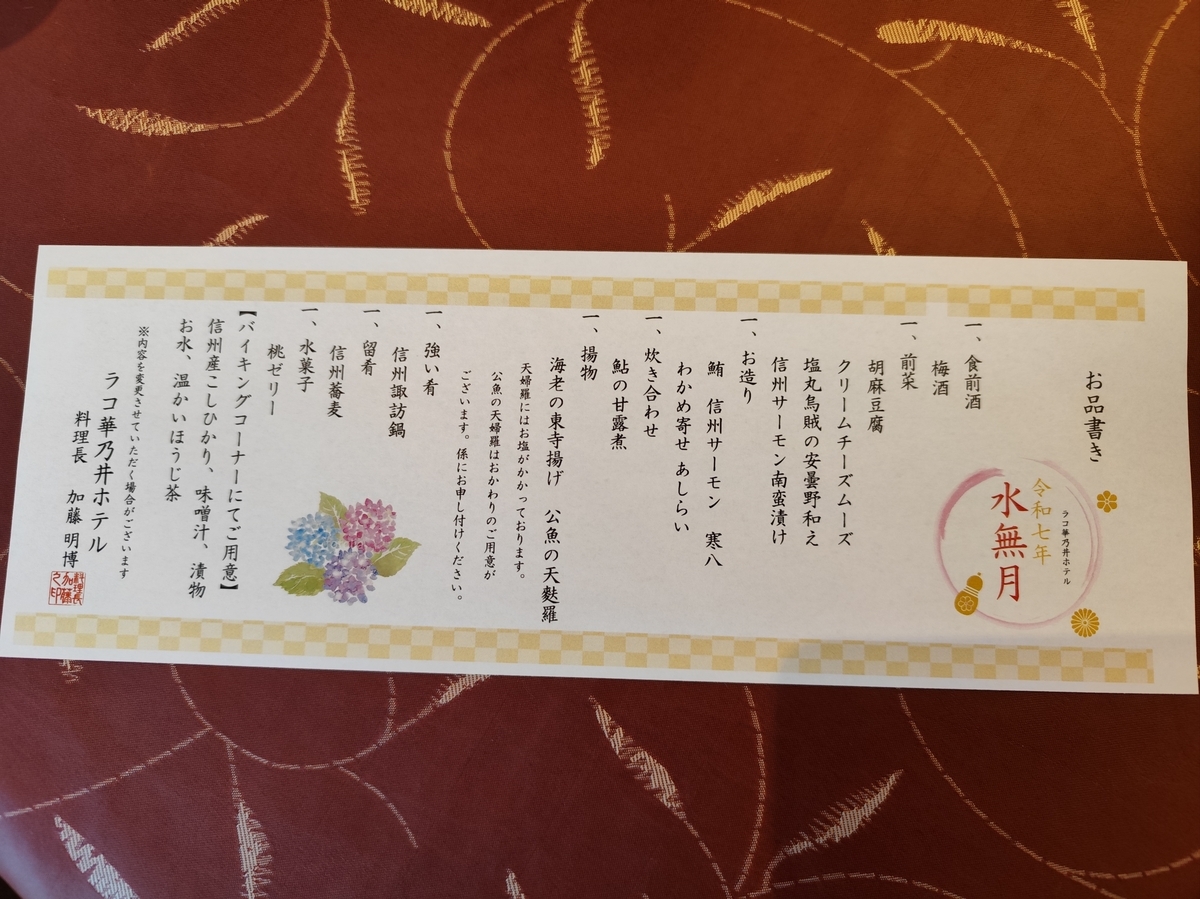 お品書き
ラコ華乃井ホテル
令和七年
水無月
一、食前酒
梅酒
一、前菜
胡麻豆腐
クリームチーズムーズ
塩丸烏賊の安曇野和え
信州サーモン南蛮漬け
一、お造り
鮪　信州サーモン　寒八
わかめ寄せ あしらい
一、炊き合わせ
鮎の甘露煮
一、揚物
海老の東寺揚げ　公魚の天麩羅
天婦羅にはお塩がかかっております。
公魚の天婦羅はおかわりのご用意が
ございます。係にお申し付けください。
一、強い肴
信州諏訪鍋
一、留肴
信州蕎麦
一、水菓子
桃ゼリー
【バイキングコーナーにてご用意】
信州産こしひかり、味噌汁、漬物
お水、温かいほうじ茶
※内容を変更させていただく場合がございます
ラコ華乃井ホテル
料理長　加藤 明博
料理長
加藤
之印